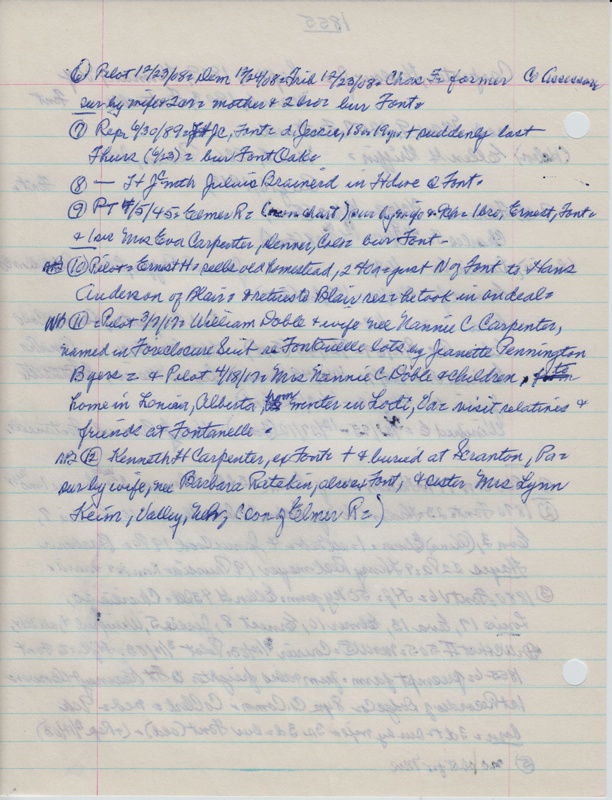 ⑥ Pilot 12/23/08 = Dem 12/24/08 = Trib 12/23/08 = Chas F = former Co Assessor
sur by wife & 2 dr = mother & 2 bro = bur Font =
⑦ Repr 6/30/89 = JC, Font = d. Jessie, 18 or 19 yr + suddenly last
Thurs (6/23) = bur Font Oak =
⑧ — Julius Brainerd in Font =
⑨ PT 4/5/45 = Elmer R = (on chart) sur by 1 bro, Ernest, Font =
& 1 sis Mrs Eva Carpenter, Denver, Colo = bur Font =
⑩ Pilot = Ernest H = sells old homestead, just N of Font to Hans
Anderson of Blair = & returns to Blair res = he took in on deal =
⑪ = Pilot 3/7/17 = William Doble & wife nee Nannie C Carpenter,
named in Foreclosure Suit re Fontanelle lots by Jeanette Pennington
Byers = & Pilot 4/18/17 = Mrs Nannie C Doble & children, to
home in Alberta, from winter in Lodi, visit relatives &
friends at Fontanelle =
⑫ Kenneth H Carpenter, ex Font + & buried at Scranton, Pa =
sur by wife, nee Barbara also ex Font, & sister Mrs Lynn
Keim, Valley, (son of Elmer R = )